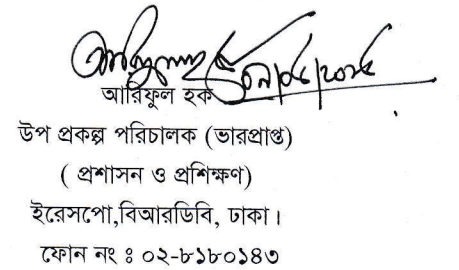 আরিফুল হক
উপ প্রকল্প পরিচালক (ভারপ্রাপ্ত)
( প্রশাসন ও প্রশিক্ষণ)
ইরেসপো,বিআরডিবি, ঢাকা।
ফোন নং ঃ ০২-৮১৮০১৪৩